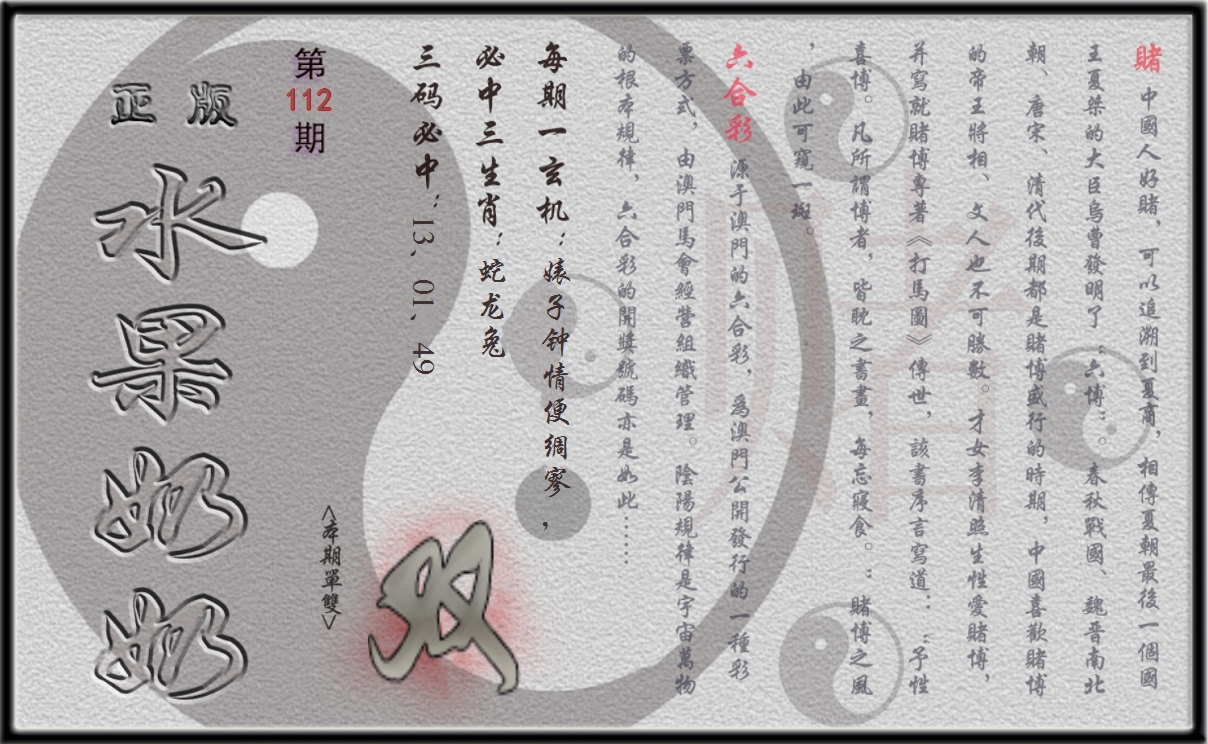 賭 中國人好賭，可以追溯到夏商，相傳夏朝最後一個國
王夏桀的大臣烏曹發明了“六博”。春秋戰國、魏晋南北
朝、唐宋、清代後期都是賭博盛行的時期，中國喜歡賭博
的帝王將相、文人也不可勝數。才女李清照生性愛賭博，
并寫就賭博專著《打馬圖》傳世，該書序言寫道：“予性
喜博。凡所謂博者，皆耽之晝，每忘寢食。：賭博之風
，由此可窺一斑。
六合彩 源于澳門的六合彩，爲澳門公開發行的一種彩
票方式，由澳門馬會經營組織管理。陰陽規律是宇宙萬物
的根本規律，六合彩的開獎號碼亦是如此……
每期一玄机：婊子钟情便绸寥，
必中三生肖：蛇龙兔
三码必中：13、01、49
双
<本期單雙>
第
112
期
正版
水果奶奶